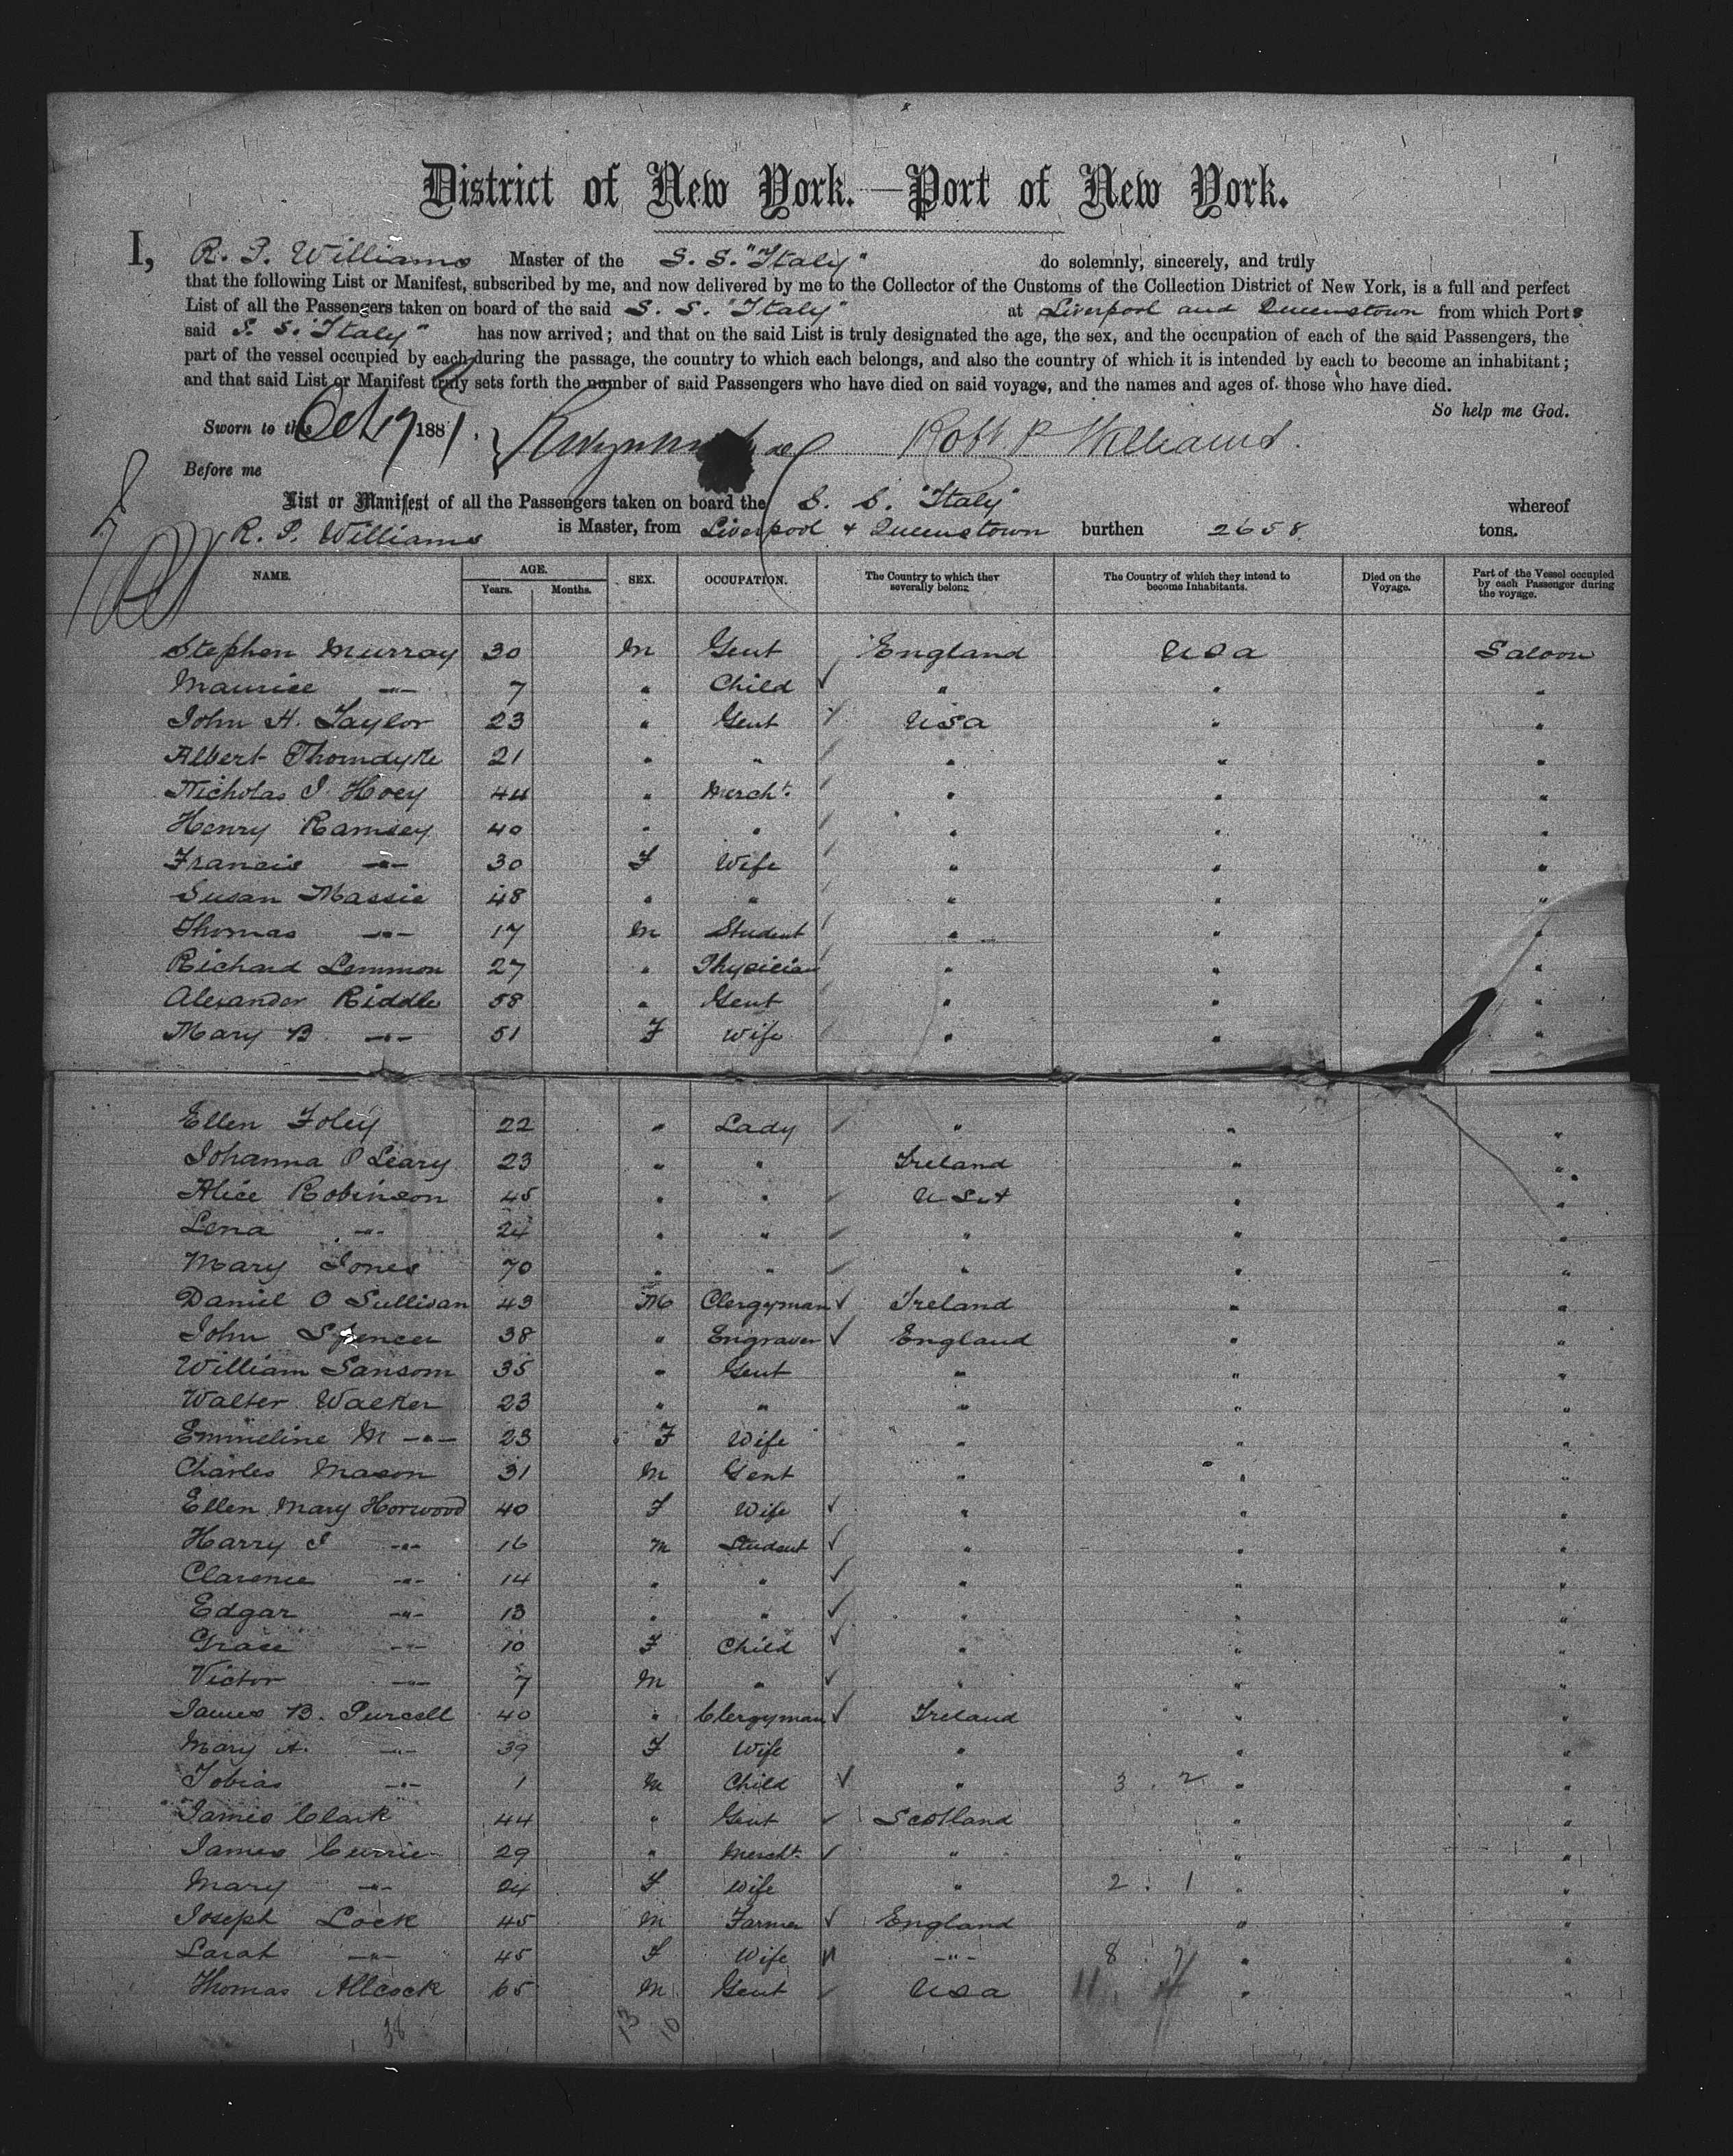 District of New York.—Port of New York.
I, R. P. Williams Master of the S. S. "Italy" do solemnly, sincerely, and truly
that the following List or Manifest, subscribed by me, and now delivered by me to the Collector of the Customs of the Collection District of New York, is a full and perfect
List of all the Passengers taken on board of the said S. S. "Italy" at Liverpool and Queenstown from which Ports
said S. S. "Italy" has now arrived; and that on the said List is truly designated the age, the sex, and the occupation of each of the said Passengers, the
part of the vessel occupied by each during the passage, the country to which each belongs, and also the country of which it is intended by each to become an inhabitant;
and that said List or Manifest truly sets forth the number of said Passengers who have died on said voyage, and the names and ages of those who have died.
So help me God.
Sworn to this Oct 1881, Robt P Williams.
Before me
List or Manifest of all the Passengers taken on board the S. S. "Italy" whereof
R. P. Williams is Master, from Liverpool & Queenstown burthen 2658 tons.
NAME. AGE. Years. Months. SEX. OCCUPATION. The Country to which they severally belong. The Country of which they intend to become Inhabitants. Died on the Voyage. Part of the Vessel occupied by each Passenger during the voyage.
Stephen Murray 30 M Gent England USa Saloon
Maurice —"— 7 " Child " " "
John H. Taylor 23 " Gent USa " "
Albert Thorndyke 21 " " " " "
Nicholas J Hoey 44 " Mercht. " " "
Henry Ramsey 40 " " " " "
Francis —"— 30 F Wife " " "
Susan Massie 48 " " " " "
Thomas —"— 17 M Student " " "
Richard Lemmon 27 " Physician " " "
Alexander Riddle 58 " Gent " " "
Mary B. —"— 51 F Wife " " "
Ellen Foley 22 " Lady " " "
Johanna O Leary 23 " " Ireland " "
Alice Robinson 45 " " USA " "
Lena —"— 24 " " " " "
Mary Jones 70 " " " " "
Daniel O Sullivan 43 M Clergyman Ireland " "
John Spencer 38 " Engraver England " "
William Sansom 35 " Gent " " "
Walter Walker 23 " " " " "
Emmeline M —"— 23 F Wife " " "
Charles Mason 31 M Gent " " "
Ellen Mary Horwood 40 F Wife " " "
Harry J —"— 16 M Student " " "
Clarence —"— 14 " " " " "
Edgar —"— 13 " " " " "
Grace —"— 10 F Child " " "
Victor —"— 7 M " " " "
James B. Purcell 40 " Clergyman Ireland " "
Mary A. —"— 39 F Wife " " "
Tobias —"— 1 M Child " 3 . 2 " "
James Clark 44 " Gent Scotland " "
James Currie 29 " Mercht. " " "
Mary —"— 24 F Wife " 2 . 1 " "
Joseph Lock 45 M Farmer England " "
Sarah —"— 45 F Wife —"— 8 . 7 " "
Thomas Allcock 65 M Gent USa 11 " "
38 13 10